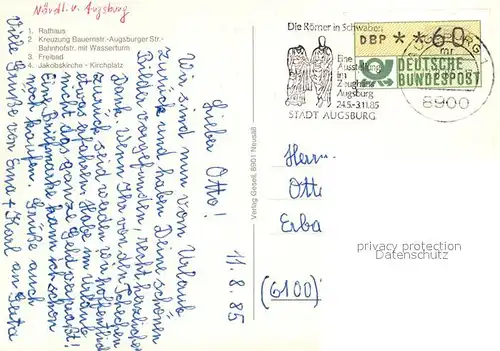 Nördl. v. Augsburg
1. Rathaus
2 Kreuzung Bauernstr.-Augsburger Str.-
Bahnhofstr. mit Wasserturm
3. Freibad
4. Jakobskirche - Kirchplatz
11.8.85
Lieber Otto!
Wir sind nun vom Urlaub
zurück und haben Deine schönen
Bilder vorgefunden, recht herzlichen
Dank. Wenn Ihr von den Tschechen
zurück seid werden wir hoffentlich
etwas erfahren. Habe im Urlaub
nicht das ganze Geld verpraßt!
Eine Briefmarke kann ich schon
noch kaufen. Grüße auch
Viele Grüße von Erna + Karl an
Verlag Gessel, 8901 Neusäß
Die Römer in Schwaben
Eine
Ausstellung
im
Zeughaus
Augsburg
24.5.-3.11.85
STADT AUGSBURG
DBP **60
DEUTSCHE
BUNDESPOST
8900
Herrn
Otti
Erba
(6100)
privacy protection
VDM ANSICHTSKARTEN